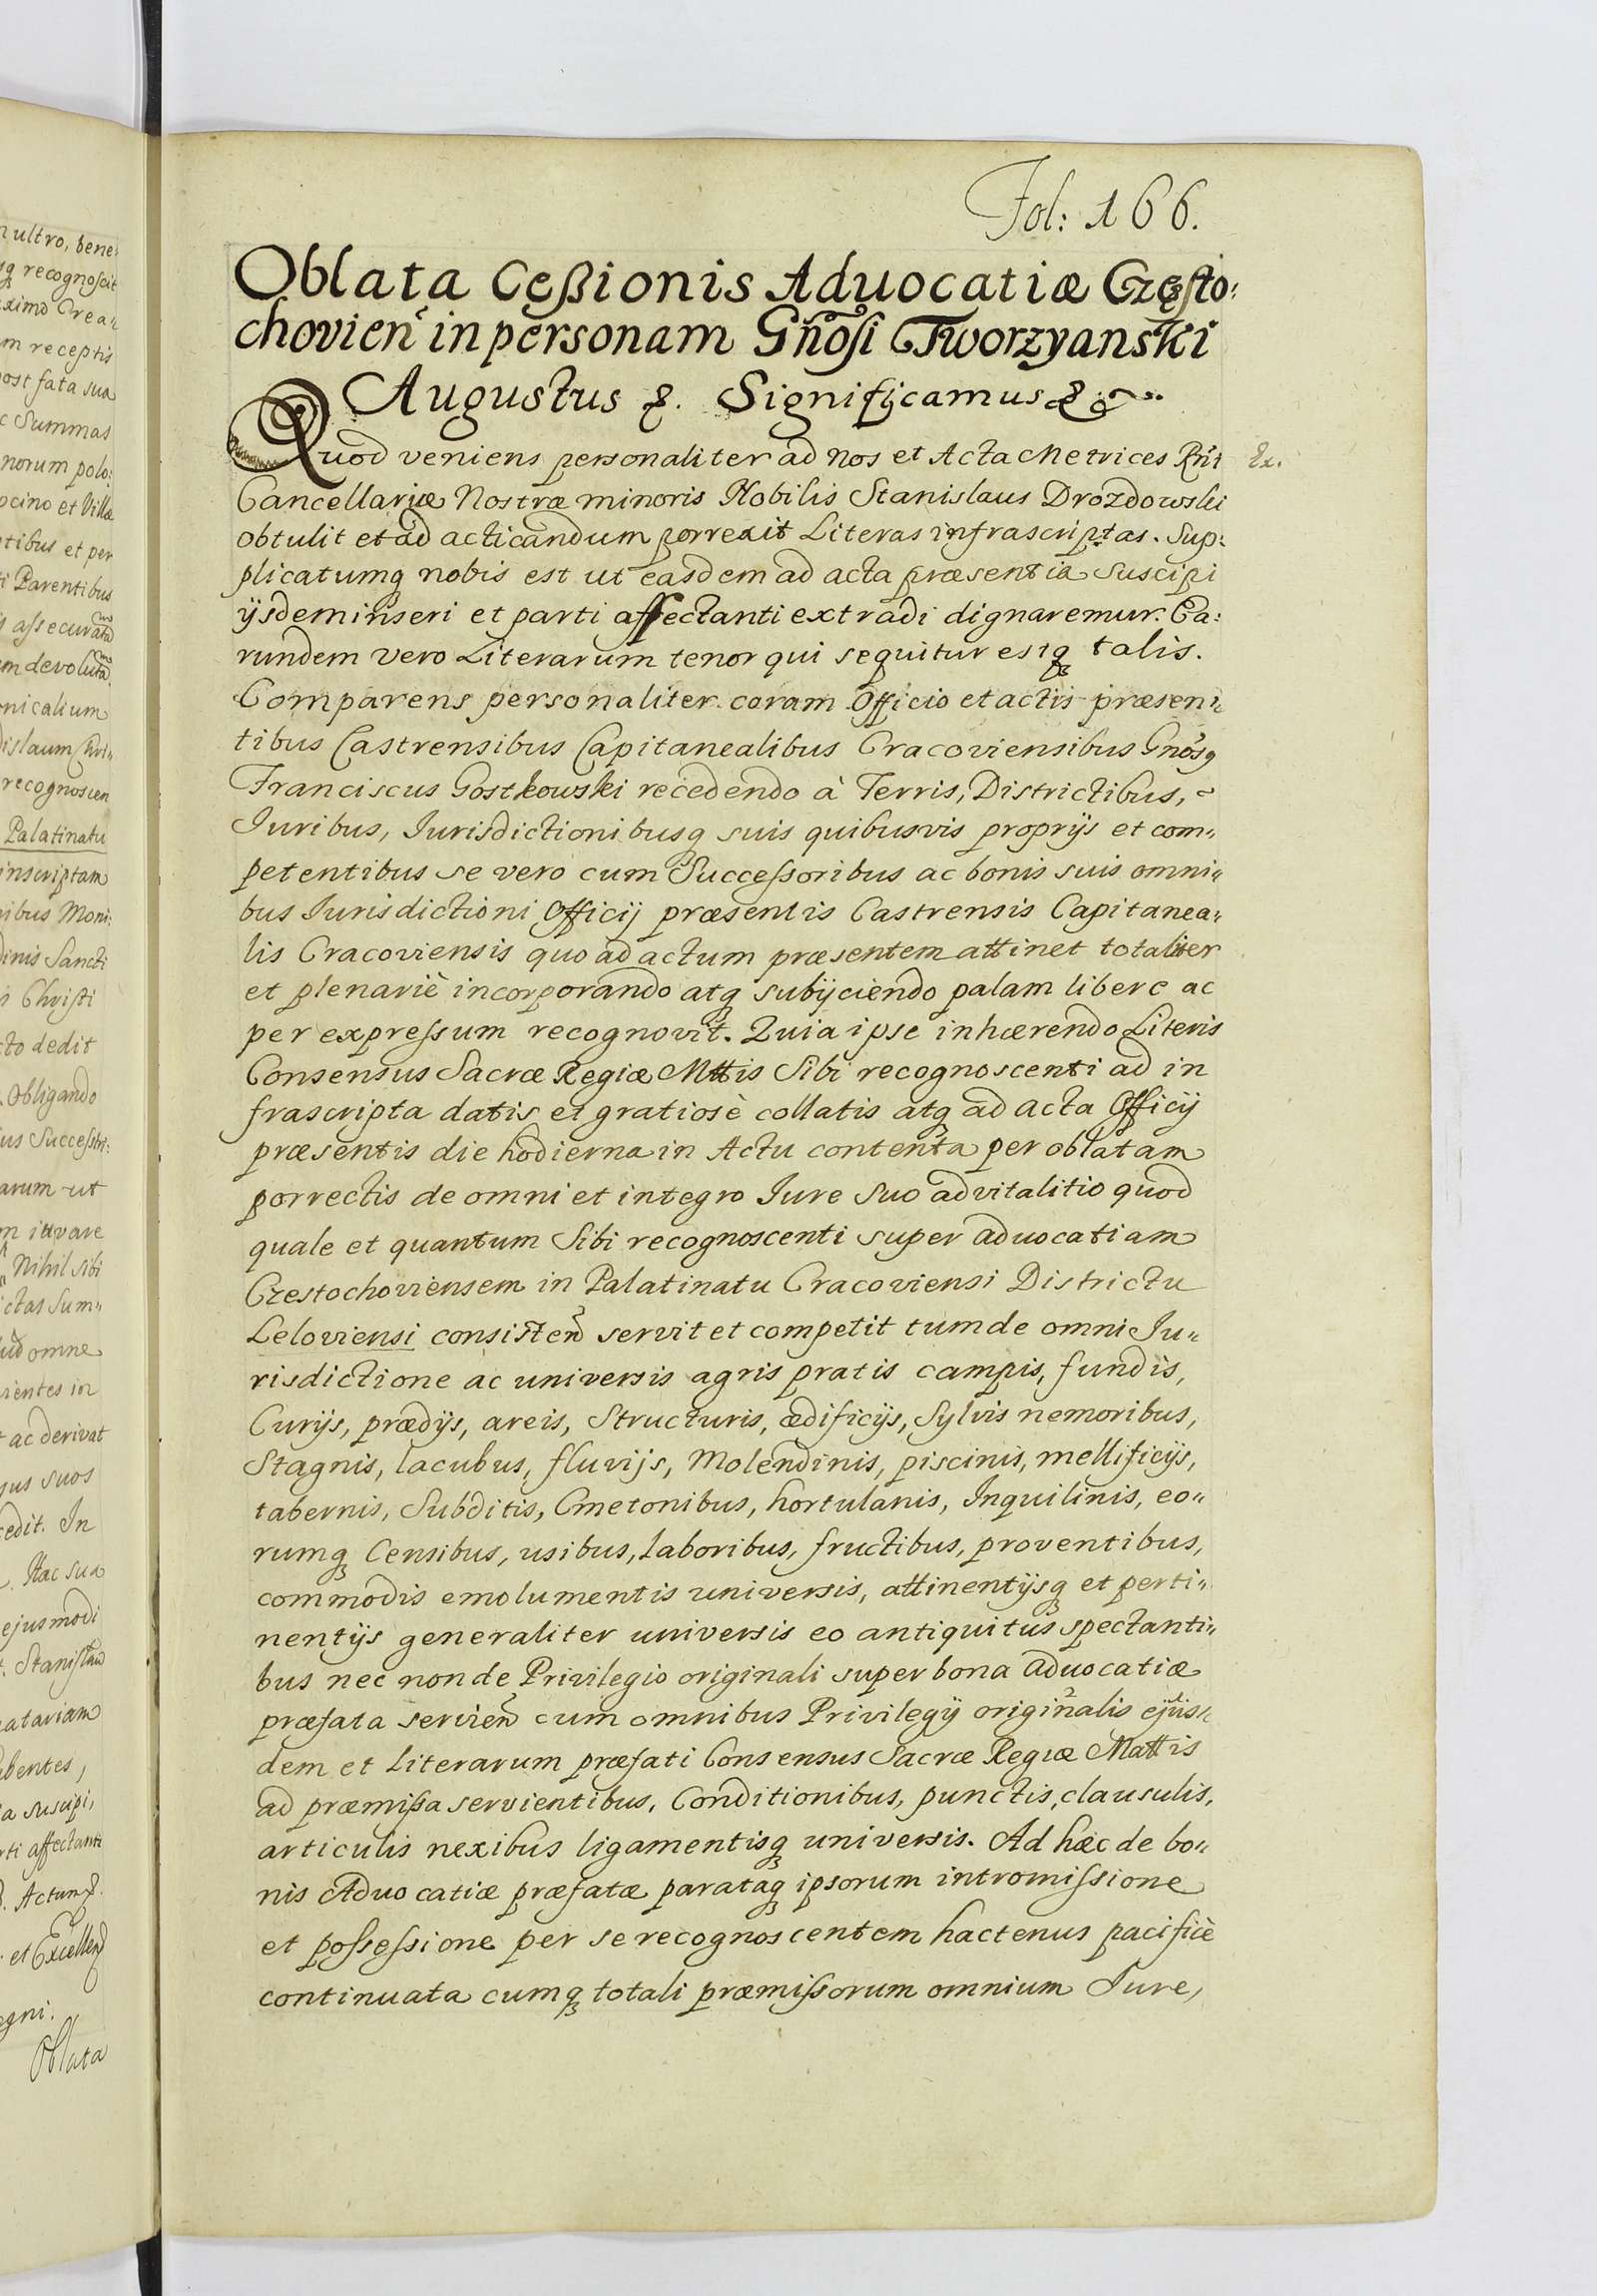 Fol: 166.
Oblata Cęßionis Aduocatiæ Często:
chovien̄ in personam Gñosi Tworzyanski
Augustus &. Significamus &
Quod veniens personaliter ad Nos et Acta Metrices Rñi
Ex.
Cancellariæ Nostræ minoris Nobilis Stanislaus Drozdowski
obtulit et ad acticandum porrexit Literas infrascriptas. Sup:
plicatumq nobis est ut easdem ad acta præsentia suscipi
ijsdem inseri et parti affectanti extradi dignaremur. Ea:
rundem vero Literarum tenor qui sequitur estq talis.
Comparens personaliter coram Officio et actis præsen:
tibus Castrensibus Capitanealibus Cracoviensibus Gnosq
Franciscus Gostkowski recedendo à Terris, Districtibus,
Iuribus, Iurisdictionibusq suis quibusvis proprijs et com:
petentibus se vero cum Successoribus ac bonis suis omni:
bus Iurisdictioni Officij præsentis Castrensis Capitanea:
lis Cracoviensis quo ad actum præsentem attinet totaliter
et plenariè incorporando atq subijciendo palam libere ac
per expressum recognovit. Quia ipse inhærendo Literis
Consensus Sacræ Regiæ Mttis Sibi recognoscenti ad in
frascripta datis et gratiosè collatis atq ad acta Officij
præsentis die hodierna in Actu contenta per oblatam
porrectis de omni et integro Iure suo advitalitio quod
quale et quantum Sibi recognoscenti super aduocatiam
Czestochoviensem in Palatinatu Cracoviensi Districtu
Leloviensi consisten̄ servit et competit tum de omni Iu:
risdictione ac universis agris pratis campis, fundis,
Curijs, prædijs, areis, Structuris, ædificijs, Sylvis nemoribus,
Stagnis, lacubus, fluvijs, Molendinis, piscinis, mellificijs,
tabernis, Subditis, Cmetonibus, hortulanis, Inquilinis, eo:
rumq Censibus, usibus, laboribus, fructibus, proventibus,
commodis emolumentis universis, attinentijsq et perti:
nentijs generaliter universis eo antiquitus spectanti:
bus nec non de Privilegio originali super bona aduocatiæ
præfata servien̄ cum omnibus Privilegij originalis ejus:
dem et Literarum præfati Consensus Sacræ Regiæ Mattis
ad præmissa servientibus, Conditionibus, punctis, clausulis,
articulis nexibus ligamentisq universis. Ad hæc de bo:
nis Aduocatiæ præfatæ parataq ipsorum intromissione
et possessione per se recognoscentem hactenus pacificè
continuata cumq totali præmissorum omnium Iure,